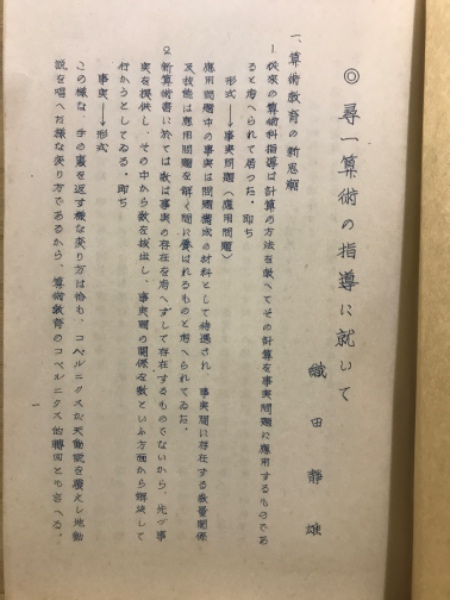 ◎ 尋一算術の指導に就いて
織田静雄
一、算術教育の新思潮
1.従来の算術科指導は計算の方法を教へてその計算を事実問題に應用するものであ
ると考へられて居つた。即ち
形式→事実問題（應用問題）
應用問題中の事実は問題構成の材料として待遇され、事実間に存在する数量関係
及技能は應用問題を解く間に養はれるものと考へられてゐた。
2.新算術書に於ては数は事実の存在を考へずして存在するものでないから、先づ事
実を提供し、その中から数を抜出し、事実間の関係を数といふ方面から解決して
行かうとしてゐる。即ち
事実→形式
この様な、手の裏を返す様な変り方は恰も、コペルニクスが天動説を覆えし地動
説を唱へた様な変り方であるから、算術教育のコペルニクス的轉回とも言へる。
一